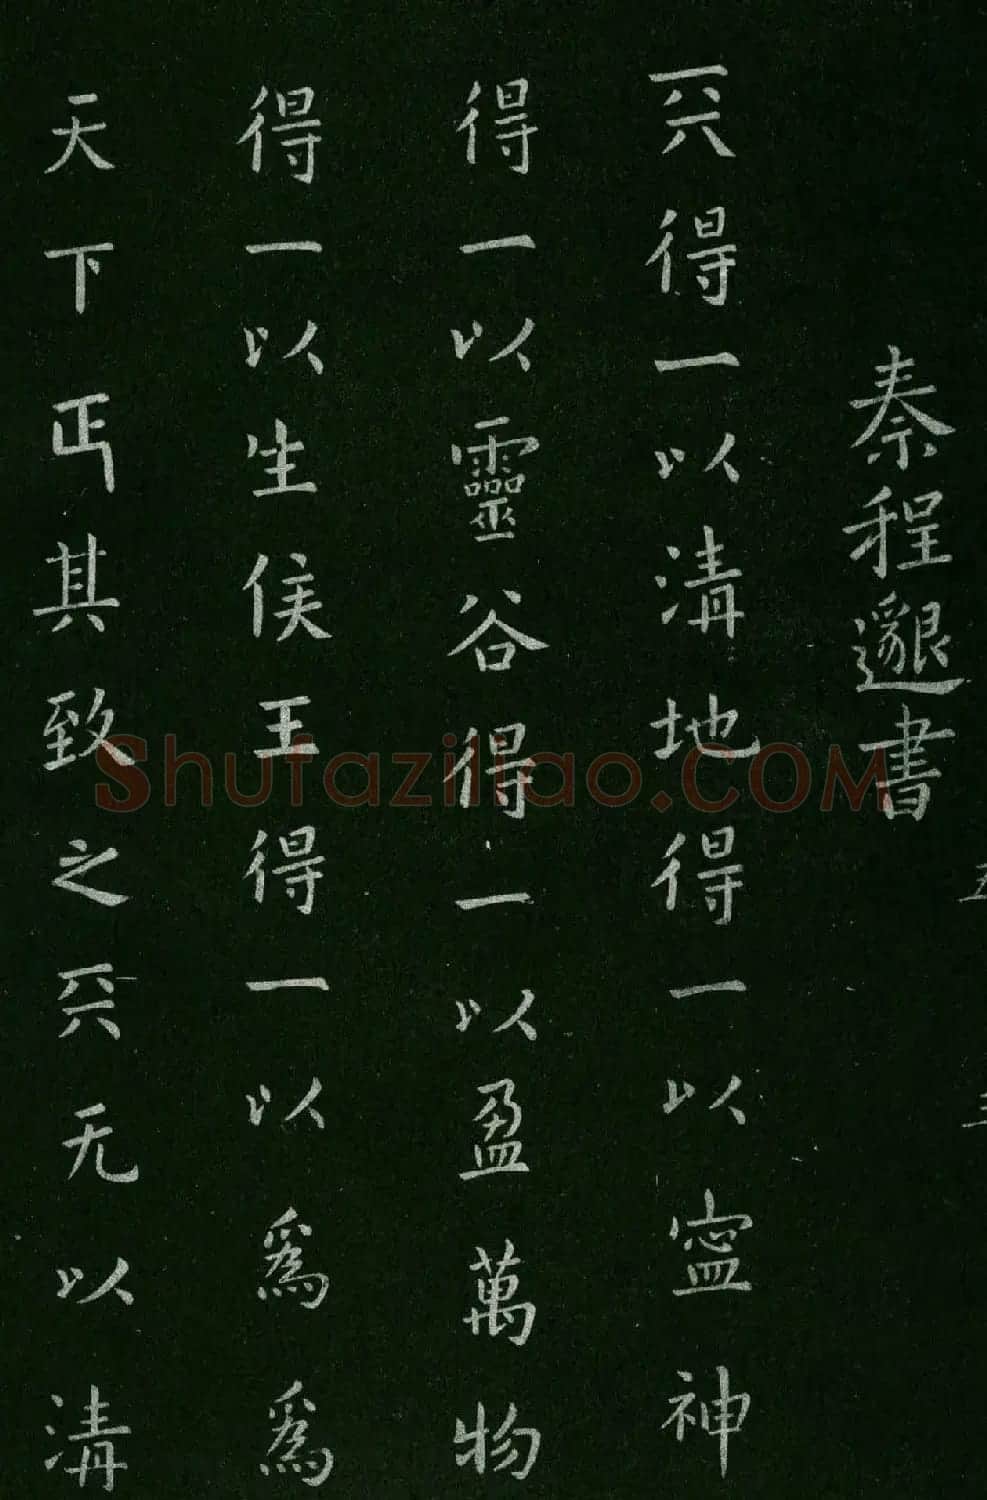 秦程邈書
兲得一以淸地得一以寍神
得一以靈谷得一以盈萬物
得一以生侯王得一以爲爲
天下丏其致之兲无以淸
五
三
Shufaziliao.COM